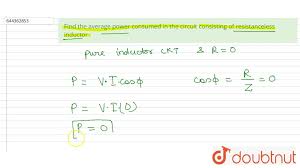 644362653
Find the average power consumed in the circuit consisting of resistanceless
inductor
pure inductor CKT & R=0
P = V·I cosϕ
cosϕ = R/Z = 0
P = V·I(0)
P = 0
doubtnut